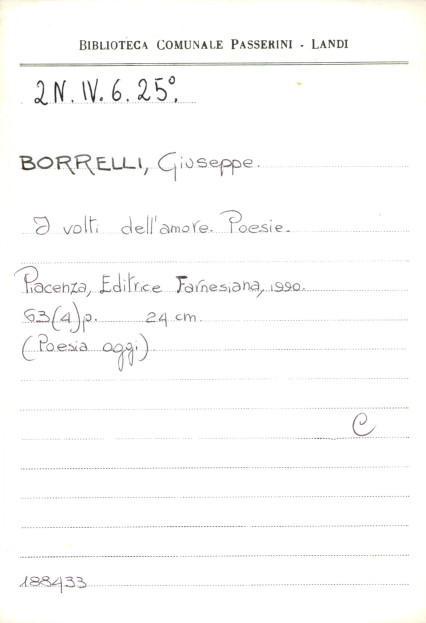 BIBLIOTECA COMUNALE PASSERINI - LANDI
2N. IV. 6. 25°.
BORRELLI, Giuseppe.
I volti dell'amore. Poesie.
Piacenza, Editrice Farnesiana, 1990.
63(4)p. 24 cm.
(Poesia oggi)
C
188433